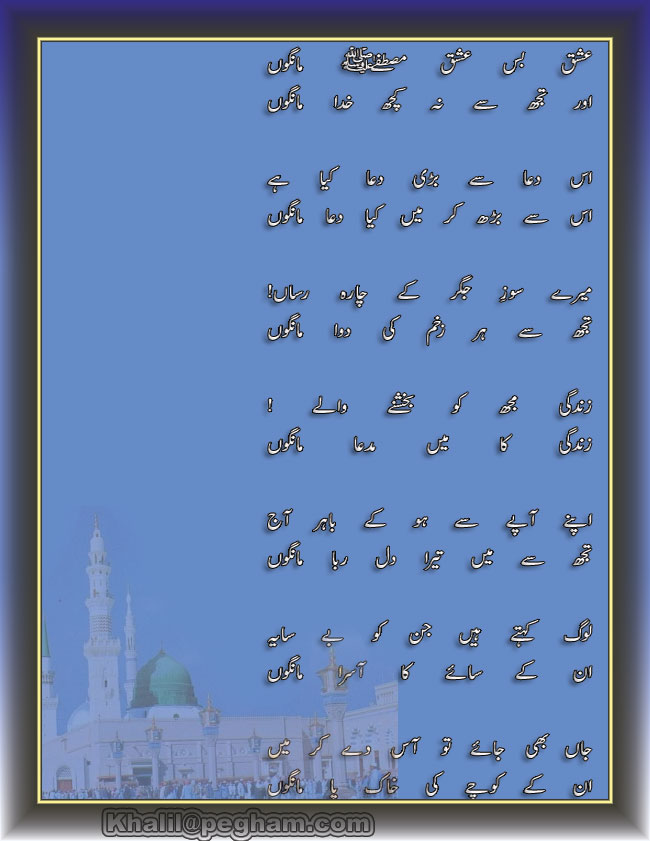 عشق بس عشق مصطفےٰ ﷺ مانگوں
اور تجھ سے نہ کچھ خدا مانگوں
اس دعا سے بڑی دعا کیا ہے
اس سے بڑھ کر میں کیا دعا مانگوں
میرے سوزِ جگر کے چارہ رساں!
تجھ سے ہر زخم کی دوا مانگوں
زندگی مجھ کو بخشنے والے !
زندگی کا میں مدعا مانگوں
اپنے آپے سے ہو کے باہر آج
تجھ سے میں تیرا دل ربا مانگوں
لوگ کہتے ہیں جن کو بے سایہ
ان کے سائے کا آسرا مانگوں
جاں بھی جائے تو آس دے کر میں
ان کے کوچے کی خاک پا مانگوں
Khalil@pegham.com